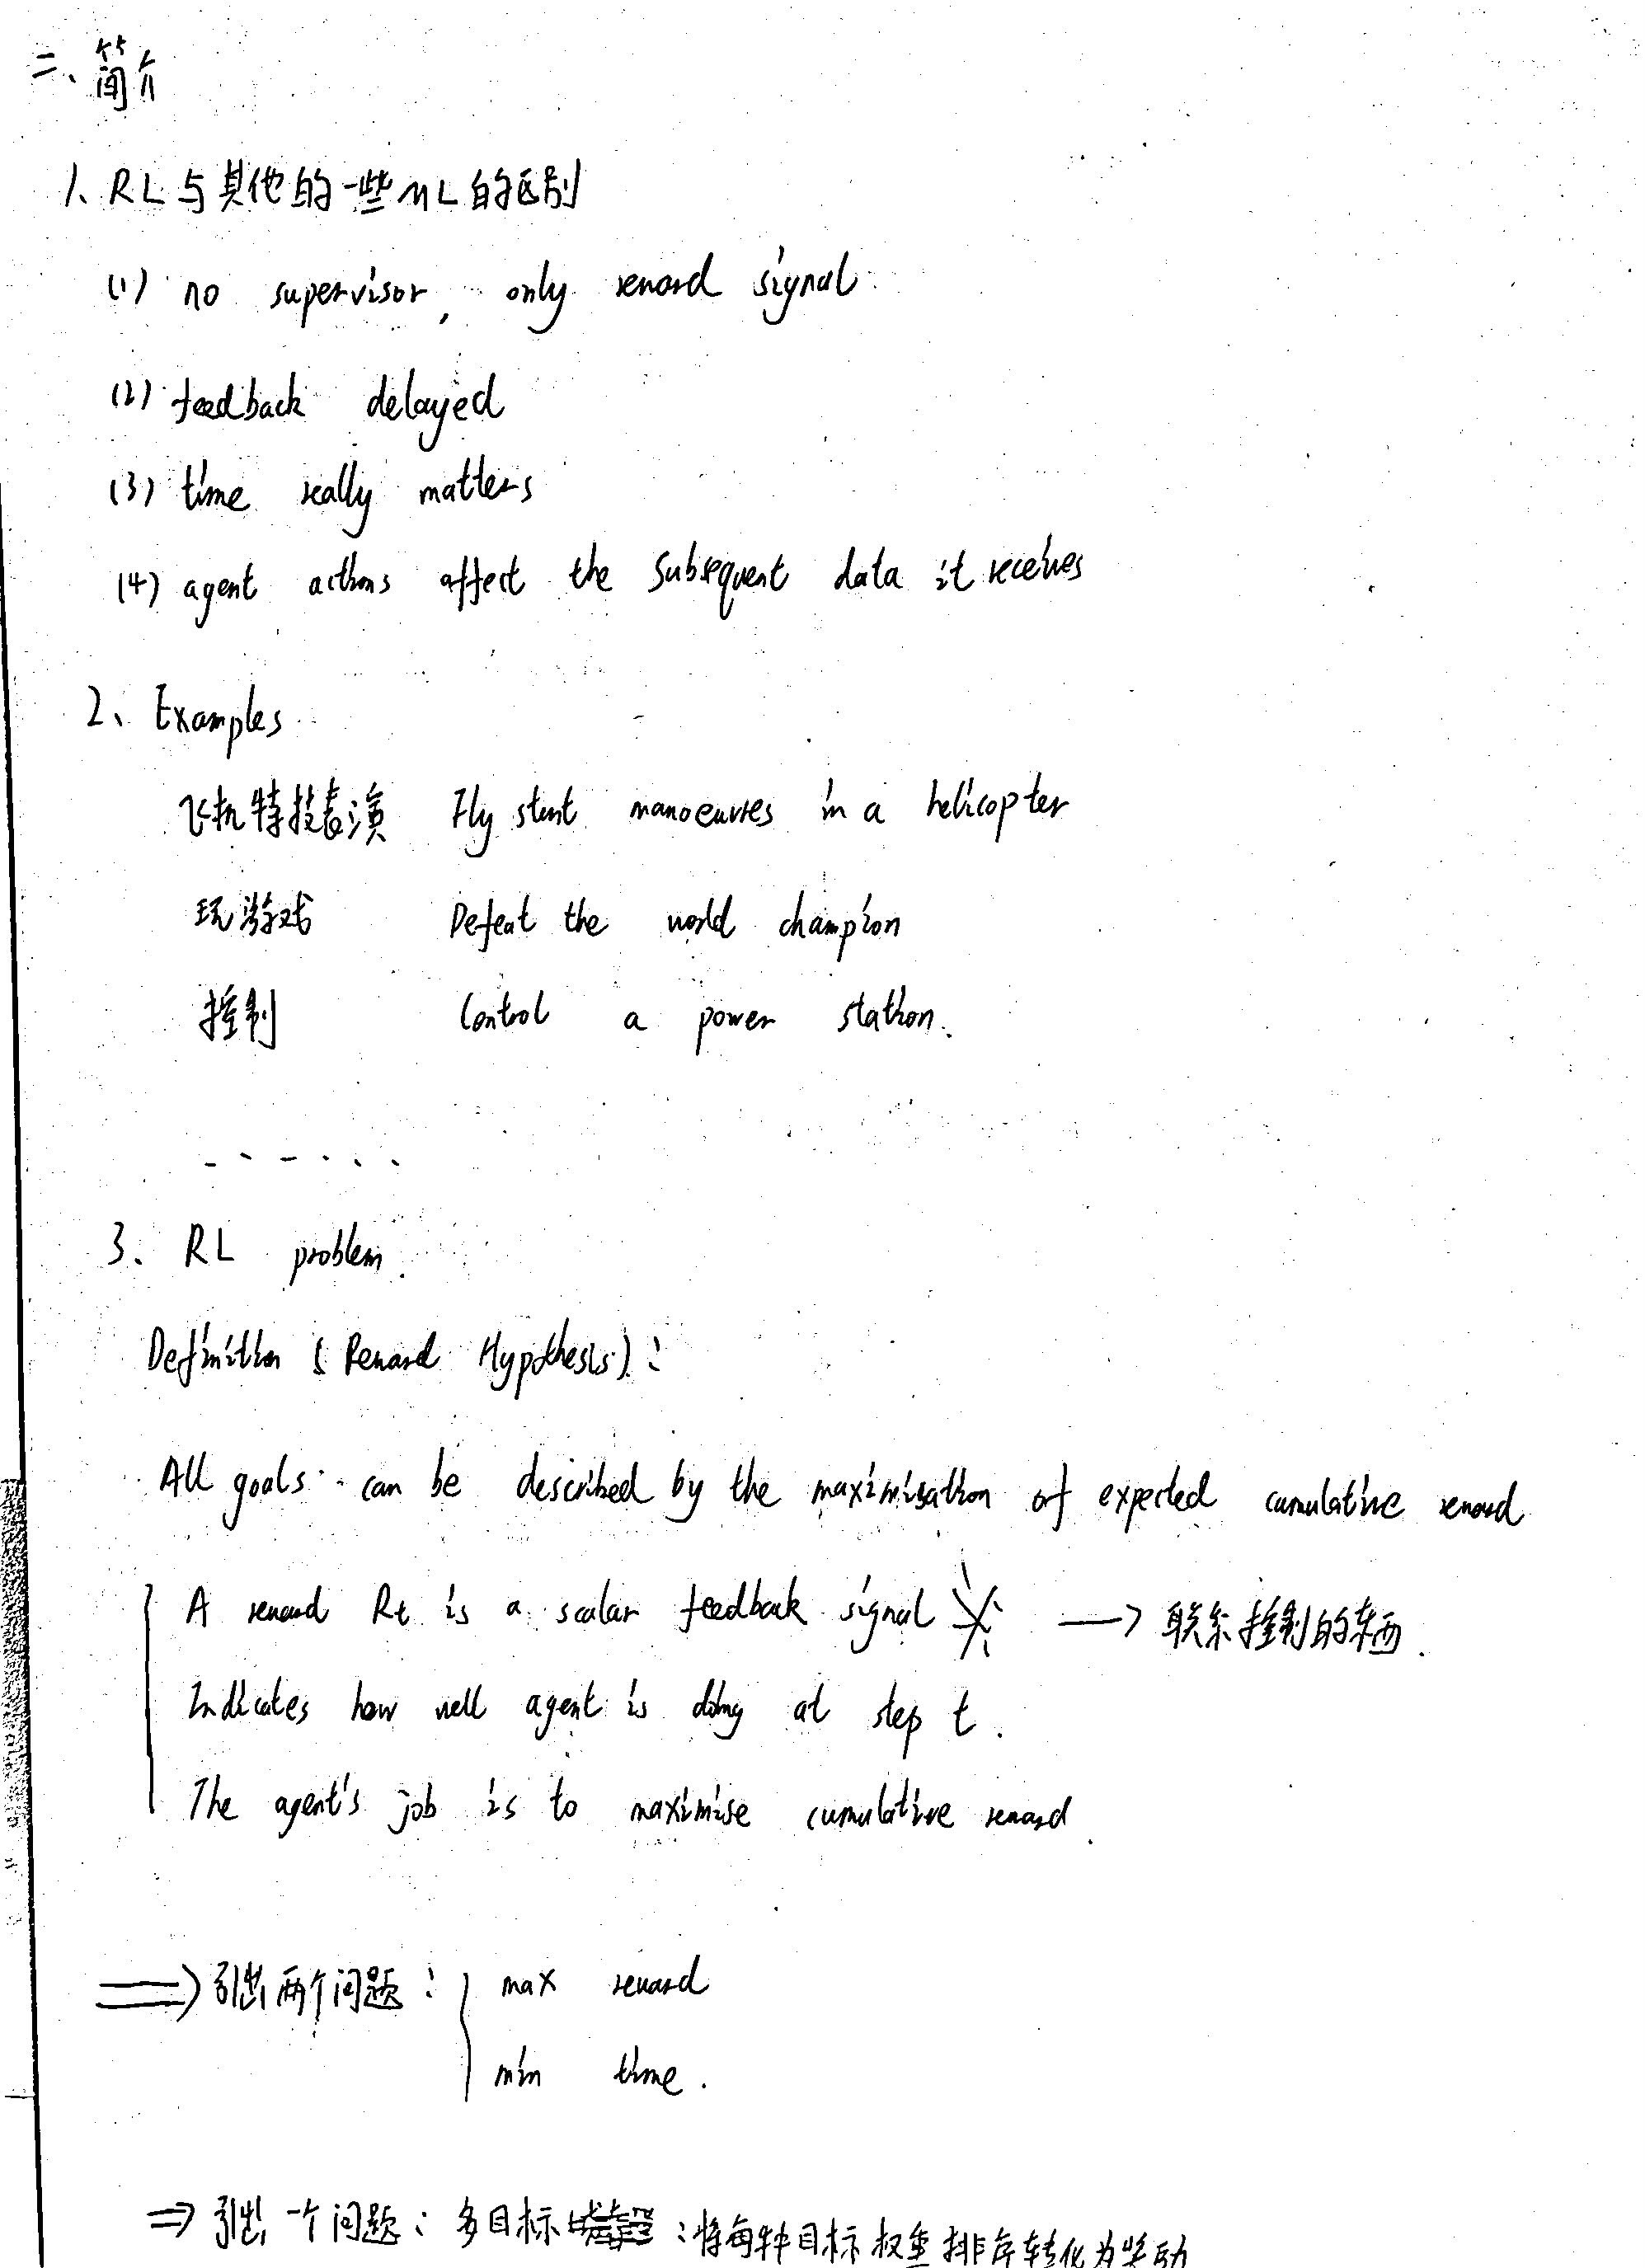 二、简介
1、RL与其他的一些ML的区别
(1) no supervisor, only reward signal
(2) feedback delayed
(3) time really matters
(4) agent actions affect the subsequent data it receives
2、Examples
飞机特技表演 Fly stunt manoeuvres in a helicopter
玩游戏 Defeat the world champion
控制 Control a power station.
......
3、RL problem.
Definition (Reward Hypothesis):
All goals can be described by the maximisation of expected cumulative reward
A reward Rt is a scalar feedback signal ※ → 联系控制的东西.
Indicates how well agent is doing at step t.
The agent's job is to maximise cumulative reward.
⇒ 引出两个问题: max reward
min time.
⇒ 引出一个问题: 多目标 : 将每种目标权重排序转化为奖励